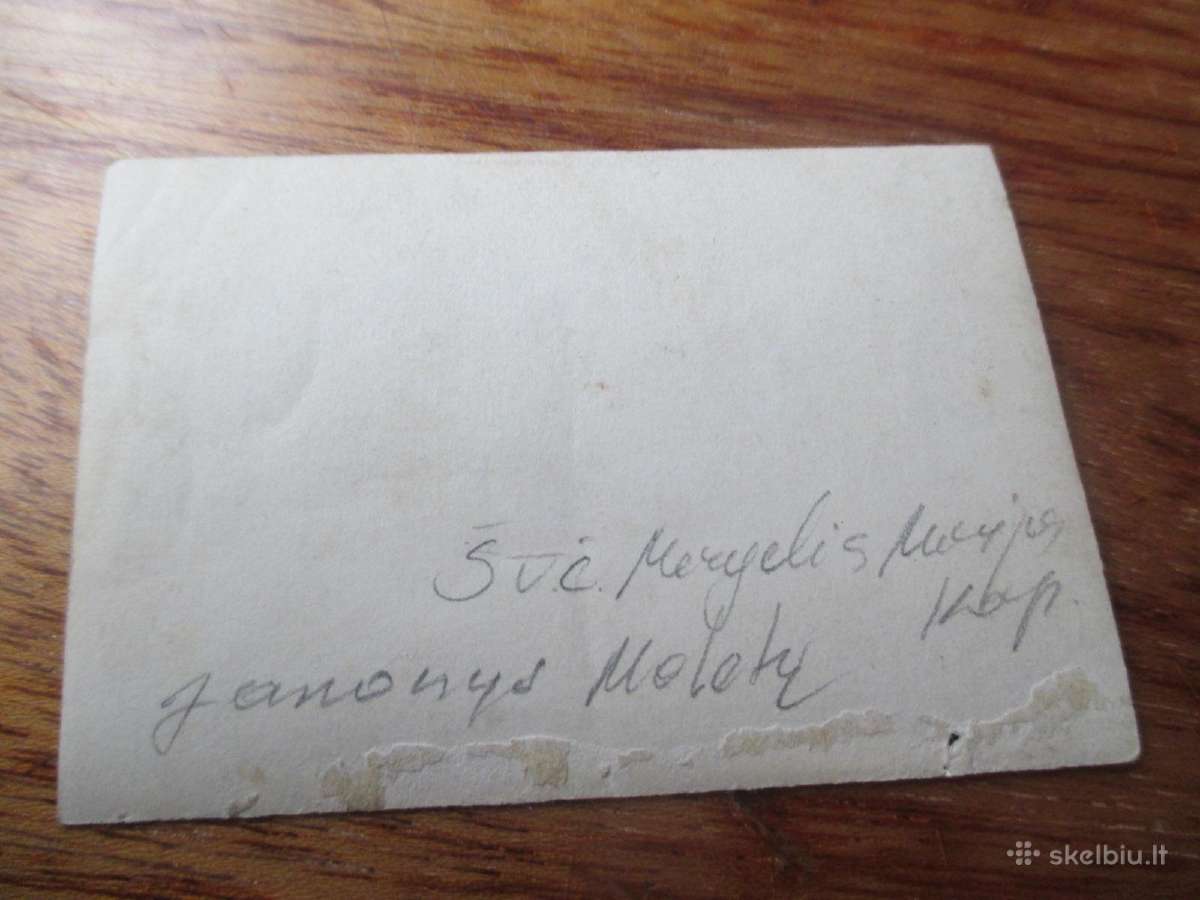 Švč. Mergelis Marijos
Kop.
Janonys Molėtų
skelbiu.lt